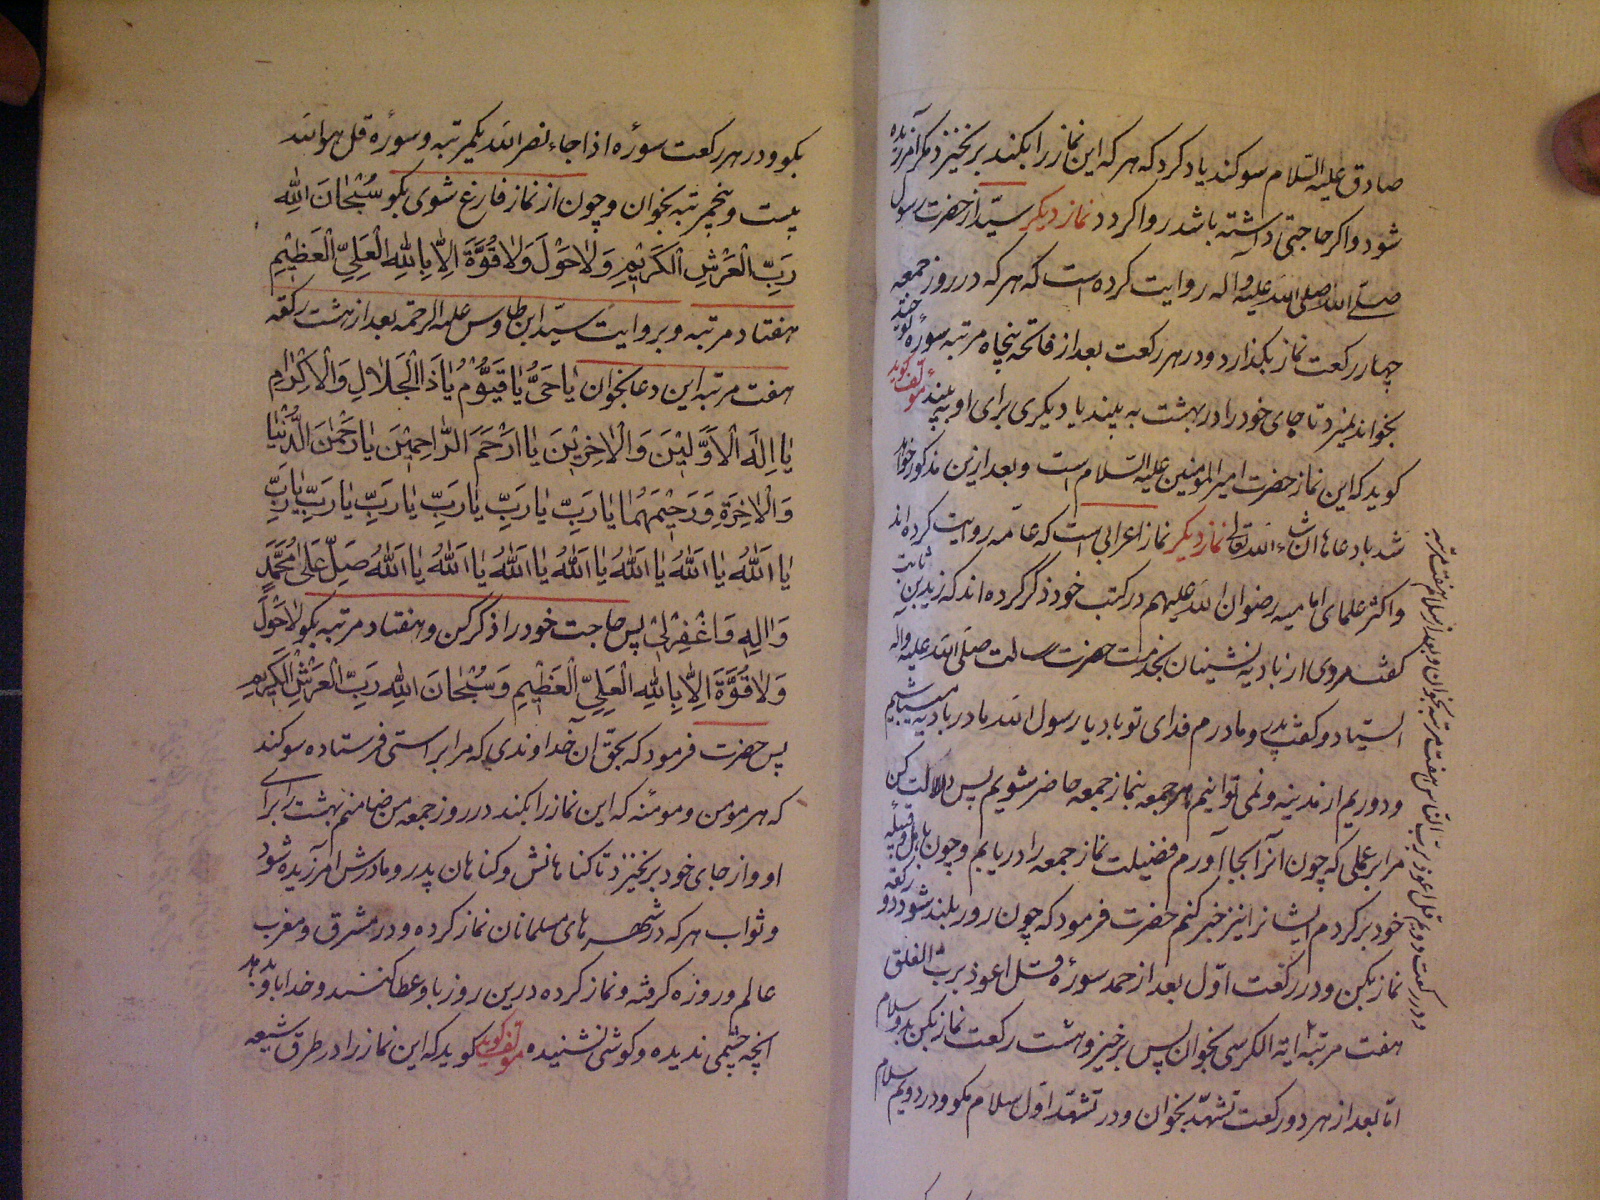 صادق علیه السّلام سوکند یاد کرد که هر که این نماز را بکند بر نخیزد مکر آمرزیده
شود و اکر حاجتی داشته باشد روا کردد نماز دیکر سیّد از حضرت رسول
صلّی الله علیه و اله روایت کرده است که هر که در روز جمعه
چهار رکعت نماز بکذارد و در هر رکعت بعد از فاتحه پنجاه مرتبه سورهٔ توحید
بخواند نمیرد تا جای خود را در بهشت به بیند یا دیکری برای او به بیند مؤلف کوید
کوید که این نماز حضرت امیر المؤمنین علیه السّلام است و بعد ازین مذکور خواهد
شد با دعاها ان شاء الله تعالی نماز دیکر نماز اعرابی است که عامّه روایت کرده اند
و اکثر علمای امامیه رضوان الله علیهم در کتب خود ذکر کرده اند که زید بن ثابت
کفت مردی از بادیه نشینان بخدمت حضرت رسالت صلّی الله علیه و آله
ایستاد و کفت پدر و مادرم فدای تو باد یا رسول الله ما در بادیه میباشیم
و دوریم از مدینه و نمی توانیم هر جمعه بنماز جمعه حاضر شویم پس دلالت کن
مرا بر عملی که چون آنرا بجا آورم فضیلت نماز جمعه را دریابم و چون باهل و قبیلهٔ
خود بر کردم ایشانرا نیز خبر کنم حضرت فرمود که چون روز بلند شود دو رکعت
نماز بکن و در رکعت اوّل بعد از حمد سورهٔ قل اعوذ بربّ الفلق
هفت مرتبه ایة الکرسی بخوان پس برخیز و هشت رکعت نماز بکن بدو سلام
امّا بعد از هر دو رکعت تشهّد بخوان و در تشهّد اوّل سلام مکو و در دویم سلام
و در رکعت دویم قل اعوذ بربّ النّاس هفت مرتبه بخوان و بعد از سلام هفت مرتبه
بکو و در هر رکعت سورهٔ اذا جاء نصر الله یکمرتبه و سورهٔ قل هو الله
بیست و پنجمرتبه بخوان و چون از نماز فارغ شوی بکو سُبْحٰانَ اللّٰهِ
رَبِّ الْعَرْشِ الْکَرِیْمِ وَلٰا حَوْلَ وَلٰا قُوَّةَ اِلّٰا بِاللّٰهِ الْعَلِیِّ الْعَظِیْمِ
هفتاد مرتبه و بروایت سیّد ابن طاوس علیه الرحمه بعد از هشت رکعة
هفت مرتبه این دعا بخوان یٰا حَیُّ یٰا قَیُّوْمُ یٰا ذَا الْجَلٰالِ وَالْاِکْرٰامِ
یٰا اِلٰهَ الْاَوَّلِیْنَ وَالْاٰخِرِیْنَ یٰا اَرْحَمَ الرّٰاحِمِیْنَ یٰا رَحْمٰنَ الدُّنْیٰا
وَالْاٰخِرَةِ وَرَحِیْمَهُمٰا یٰا رَبِّ یٰا رَبِّ یٰا رَبِّ یٰا رَبِّ یٰا رَبِّ یٰا رَبِّ
یٰا اَللّٰهُ یٰا اَللّٰهُ یٰا اَللّٰهُ یٰا اَللّٰهُ یٰا اَللّٰهُ یٰا اَللّٰهُ یٰا اَللّٰهُ صَلِّ عَلٰی مُحَمَّدٍ
وَاٰلِهِ وَاغْفِرْلِیْ پس حاجت خود را ذکر کن و هفتاد مرتبه بکو لٰا حَوْلَ
وَلٰا قُوَّةَ اِلّٰا بِاللّٰهِ الْعَلِیِّ الْعَظِیْمِ وَسُبْحٰانَ اللّٰهِ رَبِّ الْعَرْشِ الْکَرِیْمِ
پس حضرت فرمود که بحقّ ان خداوندی که مرا براستی فرستاده سوکند
که هر مومن و مومنه که این نماز را بکند در روز جمعه من ضامنم بهشت را برای
او و از جای خود بر نخیزد تا کناهانش و کناهان پدر و مادرش امرزیده شود
و ثواب هر که در شهرهای مسلمانان نماز کرده و در مشرق و مغرب
عالم و روزه کرفته و نماز کرده درین روز باو عطا کنند و خدا باو بدهد
انچه چشمی ندیده و کوشی نشنیده مؤلف کوید کوید که این نماز را در طرق شیعه